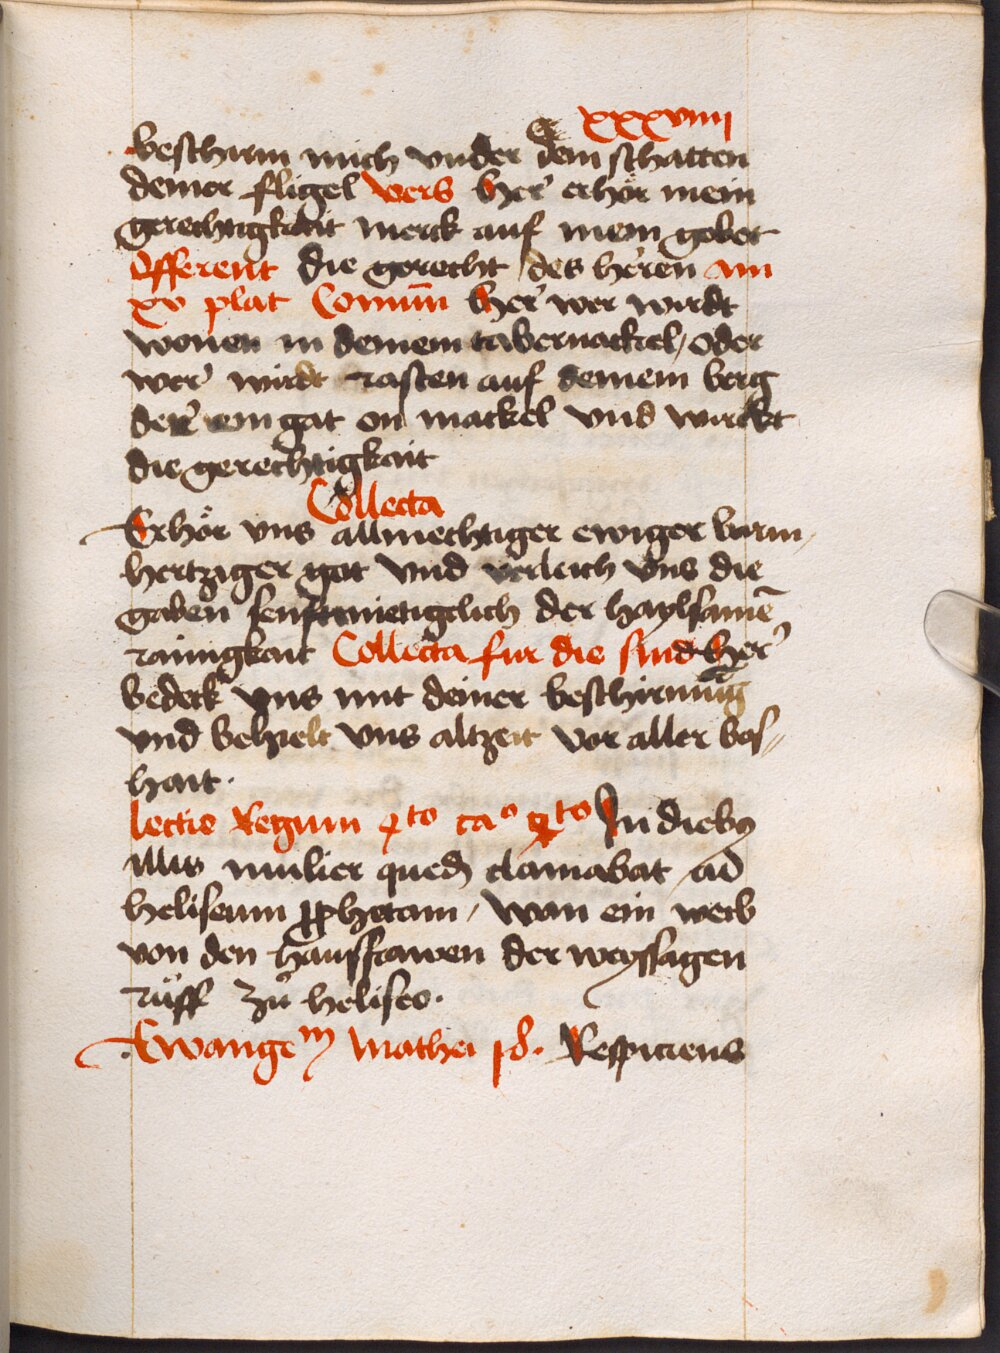 xxxviiij
beschirm mich vnder dem schatten
deiner fligel vers her erhör mein
gerechtigkait merck auf mein gebet
offerent die gerecht des heren am
xv plat Comūm her wer wirdt
wonen in deinem tabernackel, oder
wer wirdt rasten auf deinem berg
der ein gat on mackel vnd wirckt
die gerechtigkait
Collecta
Erhör vns allmechtiger ewiger barm
hertziger got vnd verleich vns die
gaben senftmietigclich der haylsamē
rainigkait Collecta fur die sind her
bedeck vns mit deiner beschirmūg
vnd behielt vns altzeit vor aller bos//
hait.
lectio Regum qto cao qto In diebus
illis mulier quedam clamabat ad
heliseum prophetam, Wan ein weib
von den hausfrawen der weyssagen
rüff zů heliseo.
Ewangem mathei Respiciens